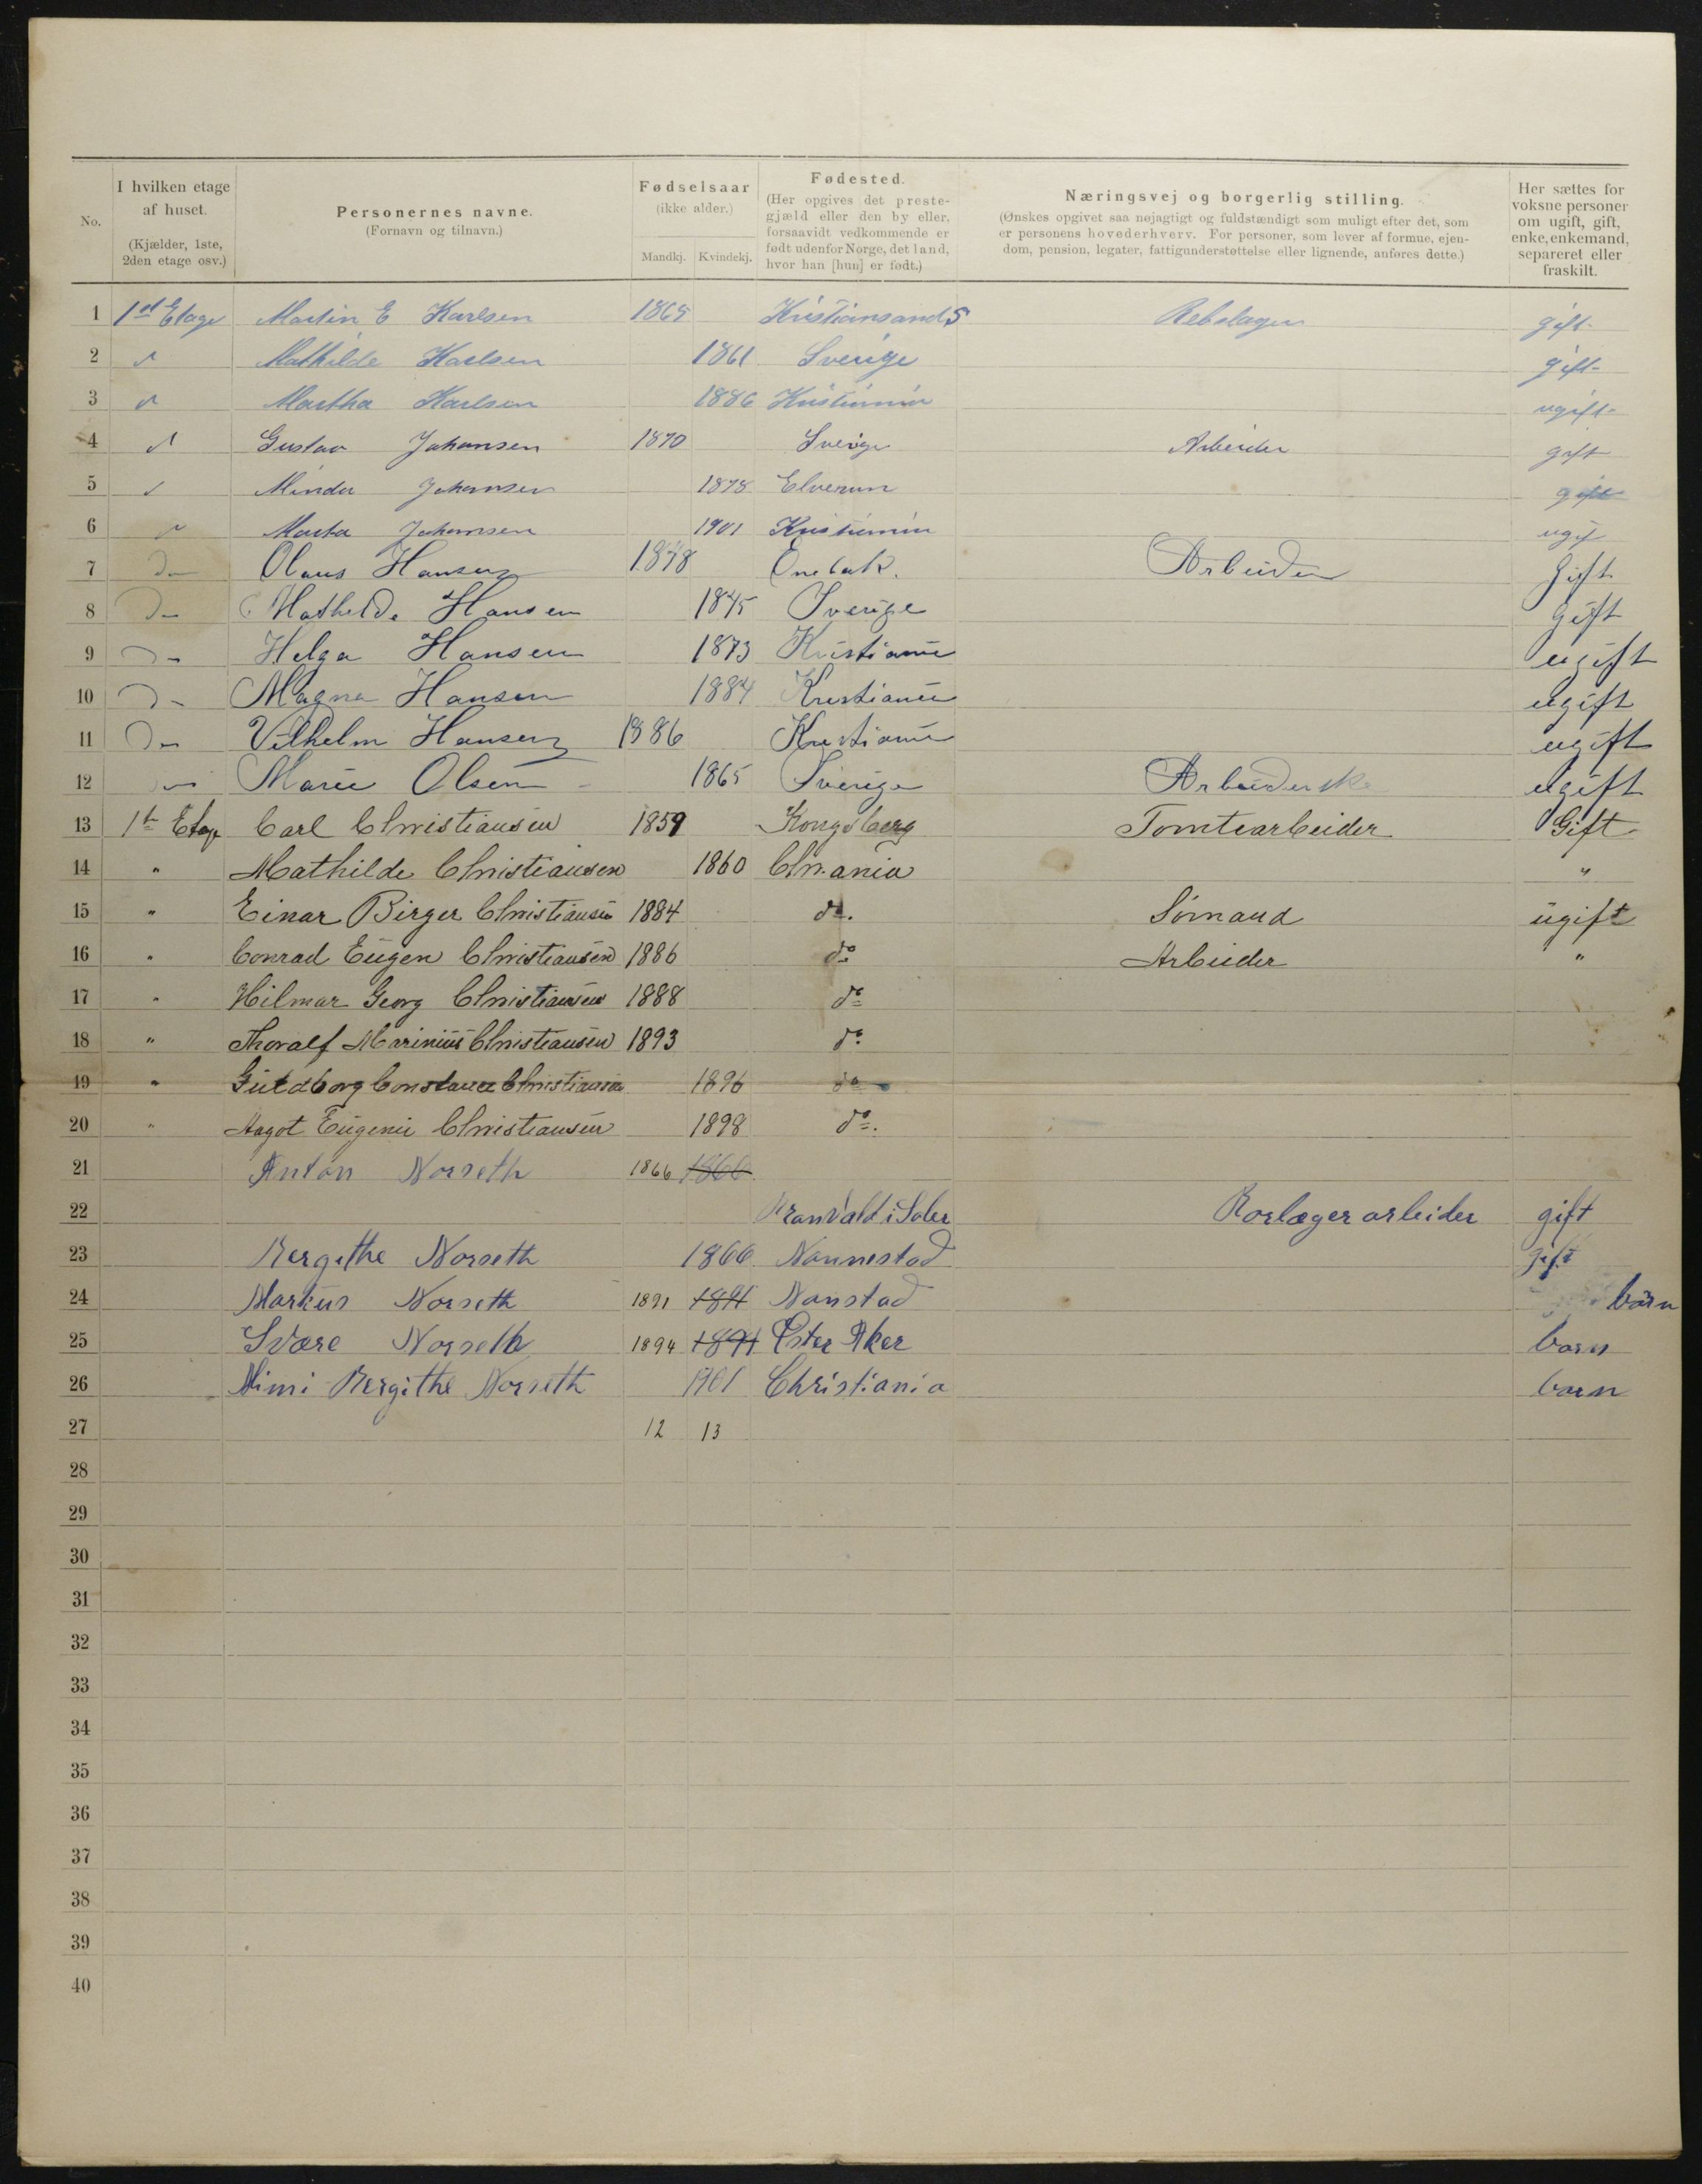 No.
I hvilken etage af huset. (Kjælder, 1ste, 2den etage osv.)
Personernes navne. (Fornavn og tilnavn.)
Fødselsaar (ikke alder.) Mandkj. Kvindekj.
Fødested. (Her opgives det prestegjæld eller den by eller, forsaavidt vedkommende er født udenfor Norge, det land, hvor han [hun] er født.)
Næringsvej og borgerlig stilling. (Ønskes opgivet saa nøjagtigt og fuldstændigt som muligt efter det, som er personens hovederhverv. For personer, som lever af formue, ejendom, pension, legater, fattigunderstøttelse eller lignende, anføres dette.)
Her sættes for voksne personer om ugift, gift, enke, enkemand, separeret eller fraskilt.
1 1st Etage Martin E Karlsen 1865 Kristiansand S Rebslager gift
2 " Mathilde Karlsen 1861 Sverige gift
3 " Martha Karlsen 1886 Kristiania ugift
4 " Gustav Johansen 1870 Sverige Arbeider gift
5 " Minda Johansen 1878 Elverum gift
6 " Marta Johansen 1901 Kristiania ugif
7 Do Olaus Hansen 1848 Enebak. Arbeider Gift
8 Do Mathelde Hansen 1845 Sverige Gift
9 Do Helga Hansen 1873 Kristiania ugift
10 Do Magna Hansen 1884 Kristiania ugift
11 Do Vilhelm Hansen 1886 Kristiania ugift
12 Do Marie Olsen 1865 Sverige Arbeiderske ugift
13 1ste Etage Carl Christiansen 1859 Kongsberg Tomtearbeider Gift
14 " Mathilde Christiansen 1860 Chr.ania "
15 " Einar Birger Christiansen 1884 do. Sømand ugift
16 " Conrad Eugen Christiansen 1886 do Arbeider "
17 " Hilmar Georg Christiansen 1888 do
18 " Thoralf Marinius Christiansen 1893 do
19 " Guldborg Constance Christiansen 1896 do
20 " Aagot Eugenie Christiansen 1898 do.
21 Anton Norseth 1866 1866
22 Branvald i Soler Rorlæger arbeider gift
23 Bergithe Norseth 1866 Nannestad gift
24 Markus Norseth 1891 1891 Nanstad barn
25 Svære Norseth 1894 1894 Øster Aker barn
26 Mimi Bergithe Norseth 1901 Christiania barn
27 12 13
28
29
30
31
32
33
34
35
36
37
38
39
40